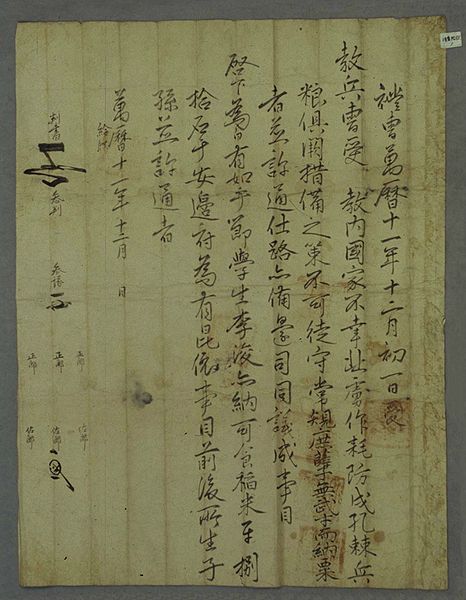 禮曹萬曆十一年十二月初一日受
教兵曹受 教內國家不幸北虜作耗防戍孔棘兵
粮俱闕措備之策不可徒守常規庶孽無武才而納粟
者並許通仕路亦備邊司同議成事目
啓下爲白有如乎節學生李浚亦納可食稻米平捌
拾石于安邊府爲有昆依事目前後所生子
孫並許通者
萬曆十一年十二月 日
判書 參判 參議
正郎 正郎 正郎
佐郎 佐郎 佐郎